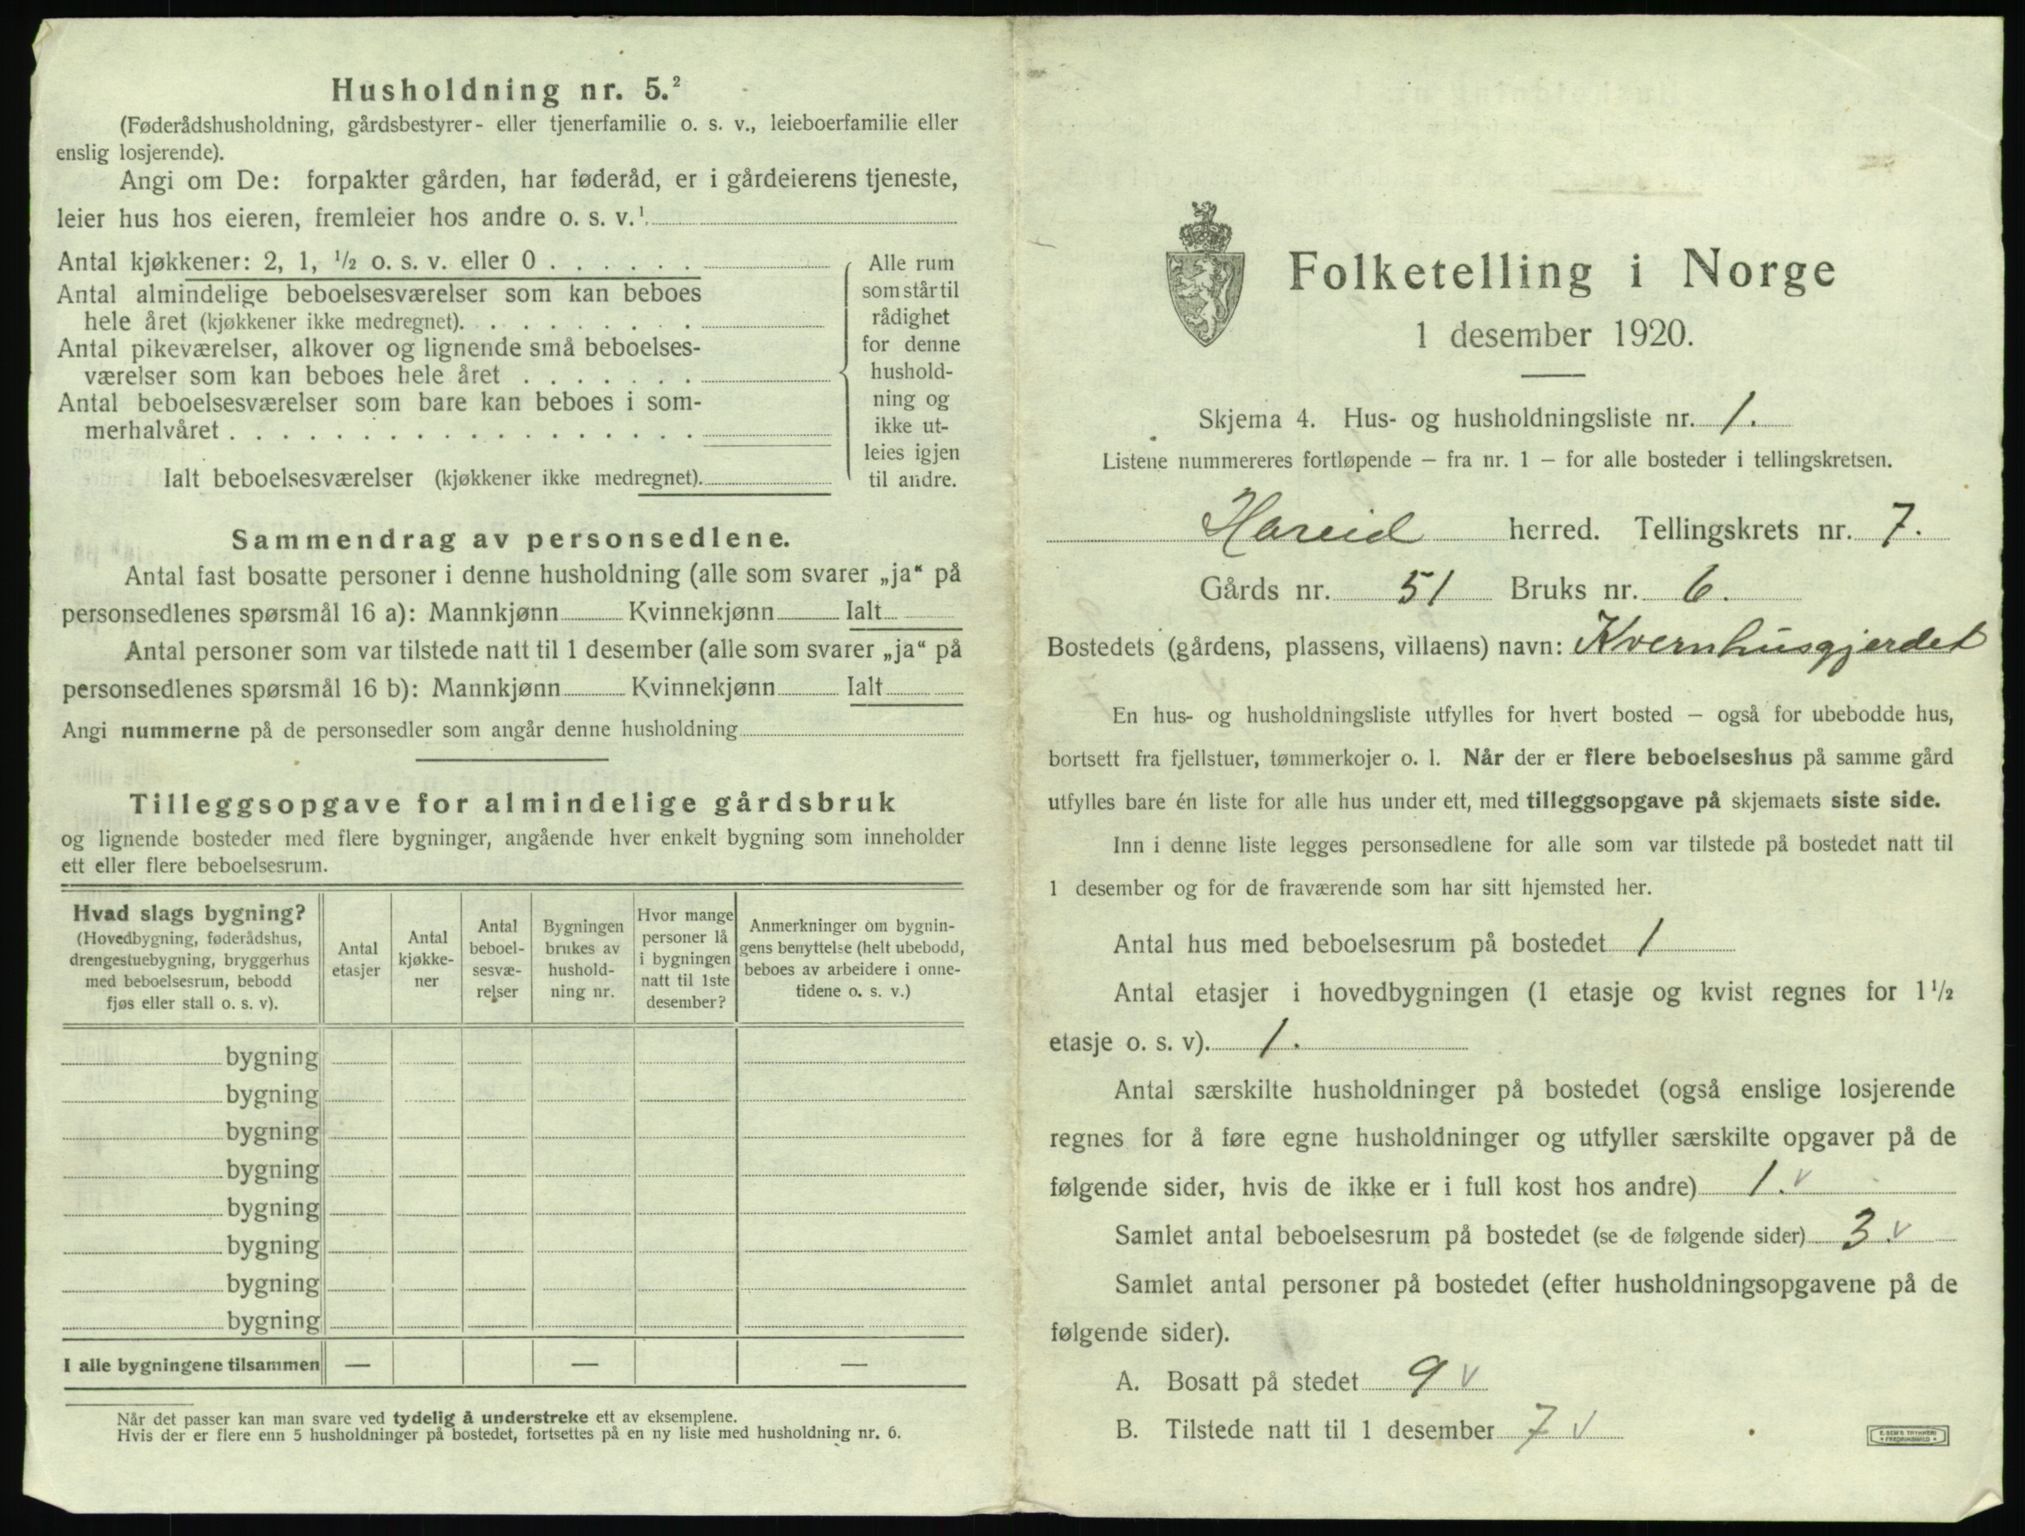 Husholdning nr. 5.²
(Føderådshusholdning, gårdsbestyrer- eller tjenerfamilie o. s. v., leieboerfamilie eller
enslig losjerende).
Angi om De: forpakter gården, har føderåd, er i gårdeierens tjeneste,
leier hus hos eieren, fremleier hos andre o. s. v.¹
Antal kjøkkener: 2, 1, ½ o. s. v. eller 0 . . . . . .
Antal almindelige beboelsesværelser som kan beboes
hele året (kjøkkener ikke medregnet). . . . . . . . .
Antal pikeværelser, alkover og lignende små beboelses-
værelser som kan beboes hele året . . . . . . .
Antal beboelsesværelser som bare kan beboes i som-
merhalvåret . . . . . . . . . . . . . . . . . .
Ialt beboelsesværelser (kjøkkener ikke medregnet).
Alle rum
som står til
rådighet
for denne
hushold-
ning og
ikke ut-
leies igjen
til andre.
Sammendrag av personsedlene.
Antal fast bosatte personer i denne husholdning (alle som svarer „ja“ på
personsedlenes spørsmål 16 a): Mannkjønn Kvinnekjønn Ialt
Antal personer som var tilstede natt til 1 desember (alle som svarer „ja“ på
personsedlenes spørsmål 16 b): Mannkjønn Kvinnekjønn Ialt
Angi nummerne på de personsedler som angår denne husholdning
Tilleggsopgave for almindelige gårdsbruk
og lignende bosteder med flere bygninger, angående hver enkelt bygning som inneholder
ett eller flere beboelsesrum.
Hvad slags bygning?
(Hovedbygning, føderådshus,
drengestuebygning, bryggerhus
med beboelsesrum, bebodd
fjøs eller stall o. s. v).
Antal
etasjer
Antal
kjøkke-
ner
Antal
beboel-
sesvæ-
relser
Bygningen
brukes av
hushold-
ning nr.
Hvor mange
personer lå
i bygningen
natt til 1ste
desember?
Anmerkninger om bygnin-
gens benyttelse (helt ubebodd,
beboes av arbeidere i onne-
tidene o. s. v.)
bygning
bygning
bygning
bygning
bygning
bygning
bygning
bygning
I alle bygningene tilsammen — — —
Når det passer kan man svare ved tydelig å understreke ett av eksemplene.
Hvis der er flere enn 5 husholdninger på bostedet, fortsettes på en ny liste med husholdning nr. 6.
Folketelling i Norge
1 desember 1920.
Skjema 4. Hus- og husholdningsliste nr. 1.
Listene nummereres fortløpende – fra nr. 1 – for alle bosteder i tellingskretsen.
Hareid herred. Tellingskrets nr. 7.
Gårds nr. 51 Bruks nr. 6.
Bostedets (gårdens, plassens, villaens) navn: Kvernhusgjerdet
En hus- og husholdningsliste utfylles for hvert bosted – også for ubebodde hus,
bortsett fra fjellstuer, tømmerkojer o. l. Når der er flere beboelseshus på samme gård
utfylles bare én liste for alle hus under ett, med tilleggsopgave på skjemaets siste side.
Inn i denne liste legges personsedlene for alle som var tilstede på bostedet natt til
1 desember og for de fraværende som har sitt hjemsted her.
Antal hus med beboelsesrum på bostedet 1
Antal etasjer i hovedbygningen (1 etasje og kvist regnes for 1½
etasje o. s. v). 1.
Antal særskilte husholdninger på bostedet (også enslige losjerende
regnes for å føre egne husholdninger og utfyller særskilte opgaver på de
følgende sider, hvis de ikke er i full kost hos andre) 1. v
Samlet antal beboelsesrum på bostedet (se de følgende sider) 3. v
Samlet antal personer på bostedet (efter husholdningsopgavene på de
følgende sider).
A. Bosatt på stedet 9 v
B. Tilstede natt til 1 desember 7 v